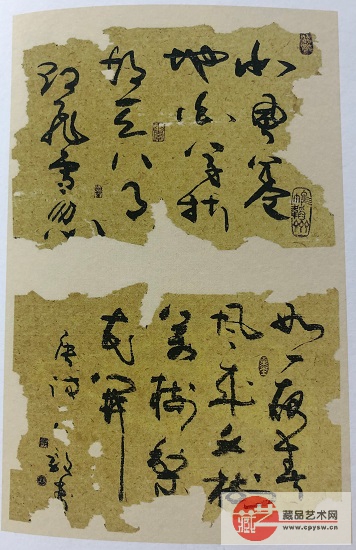 北風卷
地白草折
胡天八月
即飛雪忽
如一夜春
風來千樹
萬樹梨
花開
唐诗
藏艺
藏品艺术网
www.cpysw.cn